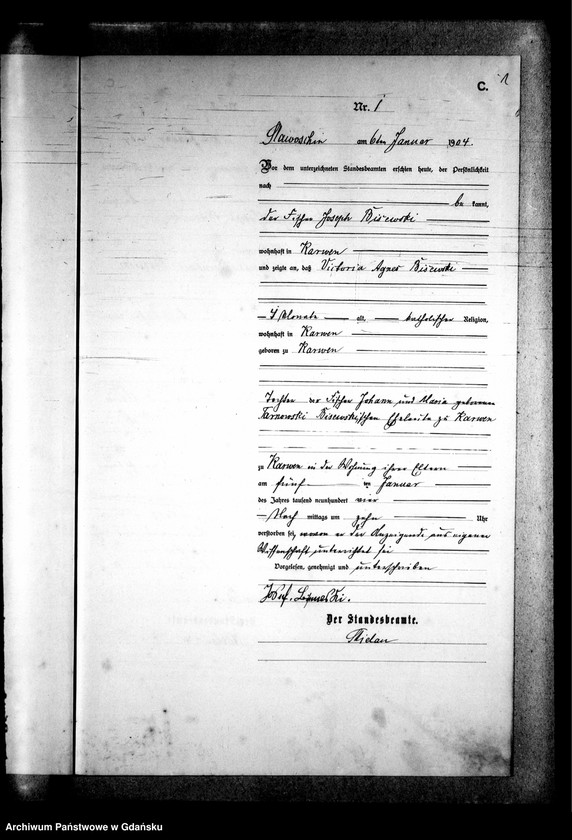 C. 1
Nr. 1
Slawoschin am 6ten Januar 1904.
Vor dem unterzeichneten Standesbeamten erschien heute, der Persönlichkeit
nach
be kannt,
der Fischer Joseph Bisewski
wohnhaft in Karwen
und zeigte an, daß Victoria Agnes Bisewski
4 Monate alt, katholischer Religion,
wohnhaft in Karwen
geboren zu Karwen
Tochter der Fischer Johann und Maria geborenen
Tarnowski Bisewskischen Eheleute zu Karwen
zu Karwen in der Wohnung ihrer Eltern
am fünf ten Januar
des Jahres tausend neunhundert vier
Nach mittags um zehn Uhr
verstorben sei, wovon er der Anzeigende aus eigener
Wissenschaft unterrichtet sei
Vorgelesen, genehmigt und unterschrieben
Josef.
Der Standesbeamte.
Archiwum Państwowe w Gdańsku